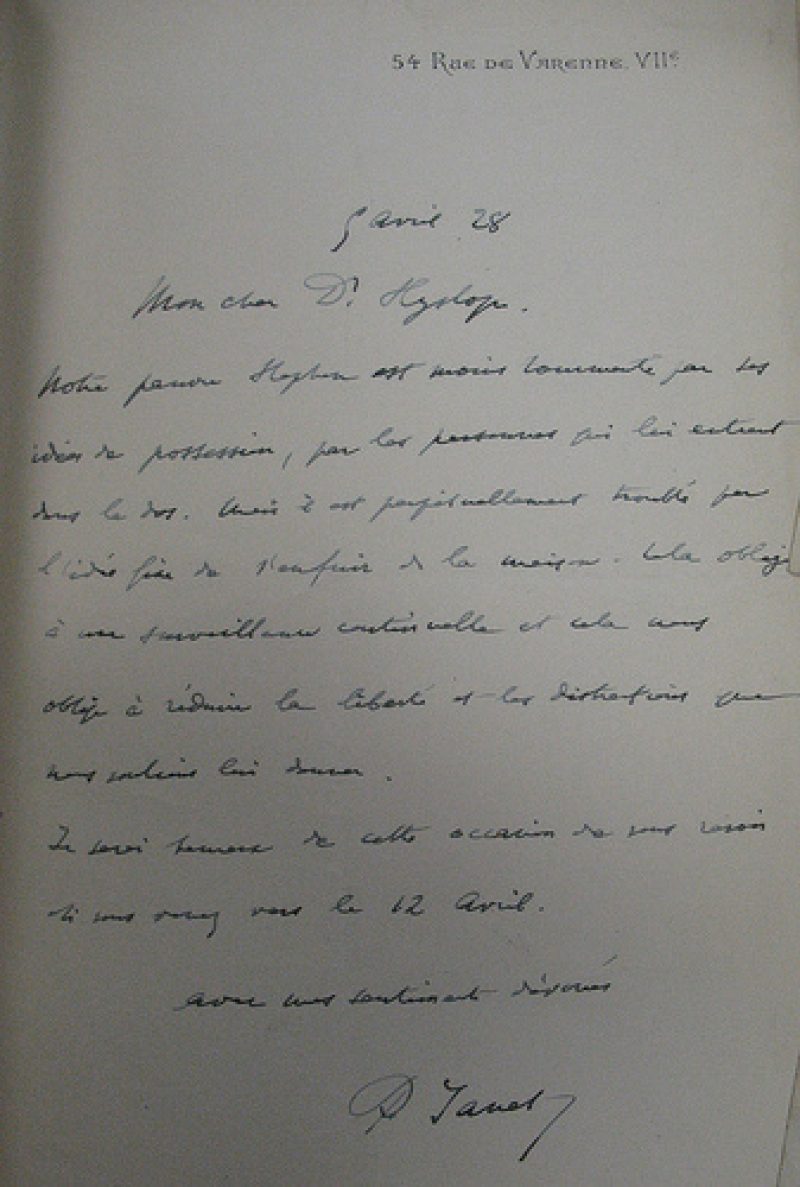 54 Rue de Varenne. VIIe
5 avril 28
Mon cher Dr. Hyslop.
Notre pauvre Stephen est moins tourmenté par ses
idées de possession, par les personnes qui lui entrent
dans le dos. Mais il est perpétuellement troublé par
l'idée fixe de s'enfuir de la maison. Cela oblige
à une surveillance continuelle et cela nous
oblige à réduire la liberté et les distractions que
nous voulions lui donner.
Je serai heureux de cette occasion de vous revoir
si vous venez vers le 12 Avril.
avec mes sentiments dévoués
P Janet